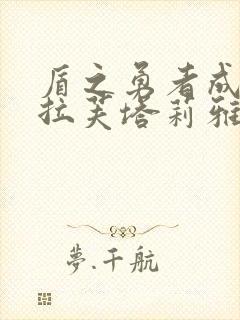 盾之勇者成
拉芙塔莉雅
夢.千航